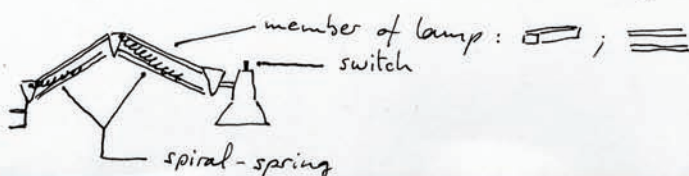 member of lamp : ;
switch
spiral-spring